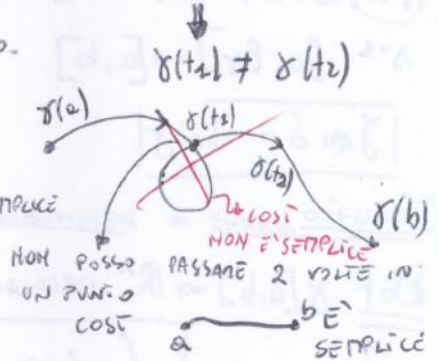 γ(t₁) ≠ γ(t₂)
γ(a)
γ(t₁)
γ(t₂)
γ(b)
COSÌ
NON È SEMPLICE
NON POSSO PASSARE 2 VOLTE IN
UN PUNTO
COSÌ
a b È
SEMPLICE